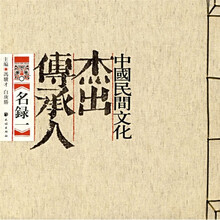 中國民間文化
杰出
傳承人
《名録一》
主編 馮驥才 白庚勝